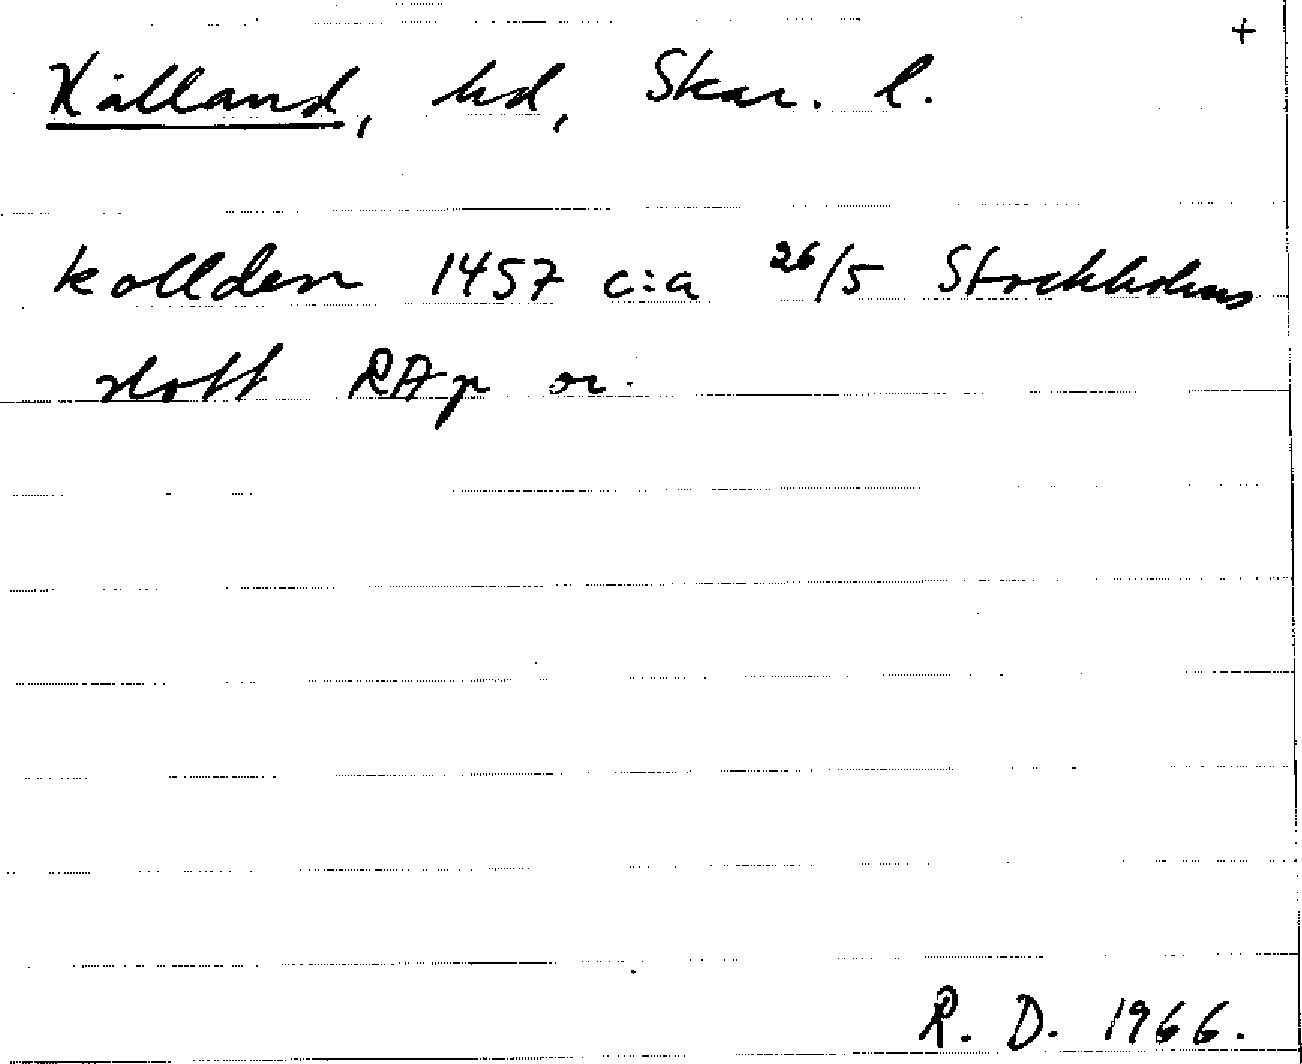 +
Kålland, hd, Skar. l.
kollden 1457 c:a 26/5 Stockholms
slott RAp or.
R. D. 1966.